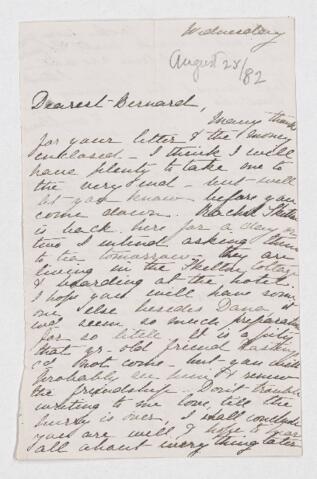 Wednesday
August 23/82
Dearest Bernard,
Many thanks
for your letter & the money
enclosed - I think I will
have plenty to take me to
the very end - but will
let you know before you
come down. Rachel Skelton
is back here for a day or
two. I intend asking them
to tea tomorrow. They are
living in the Skelton cottage
& boarding at the hotel.
I hope you will have some
one else besides Dana it
will seem so much preparation
for so little. It is a pity
that yr. old friend
could not come - but you will
probably see him & renew
the friendship. Don't trouble
writing to me love, till the
hurry is over, I shall conclude
you are well & hope to hear
all about everything later